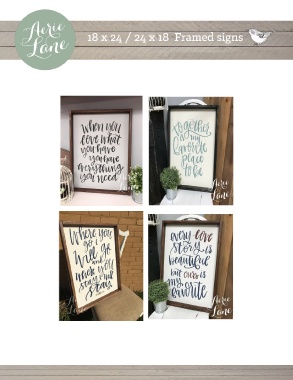 Aerie
Lane
18 x 24 / 24 x 18 Framed signs
when you
love what
you have
you have
everything
you need
together
is my
favorite
place
to be
Aerie
Lane
Where you
go I
will go
and
where you
stay I will
stay
every love
story is
beautiful
but ours is
my
favorite
Aerie
Lane